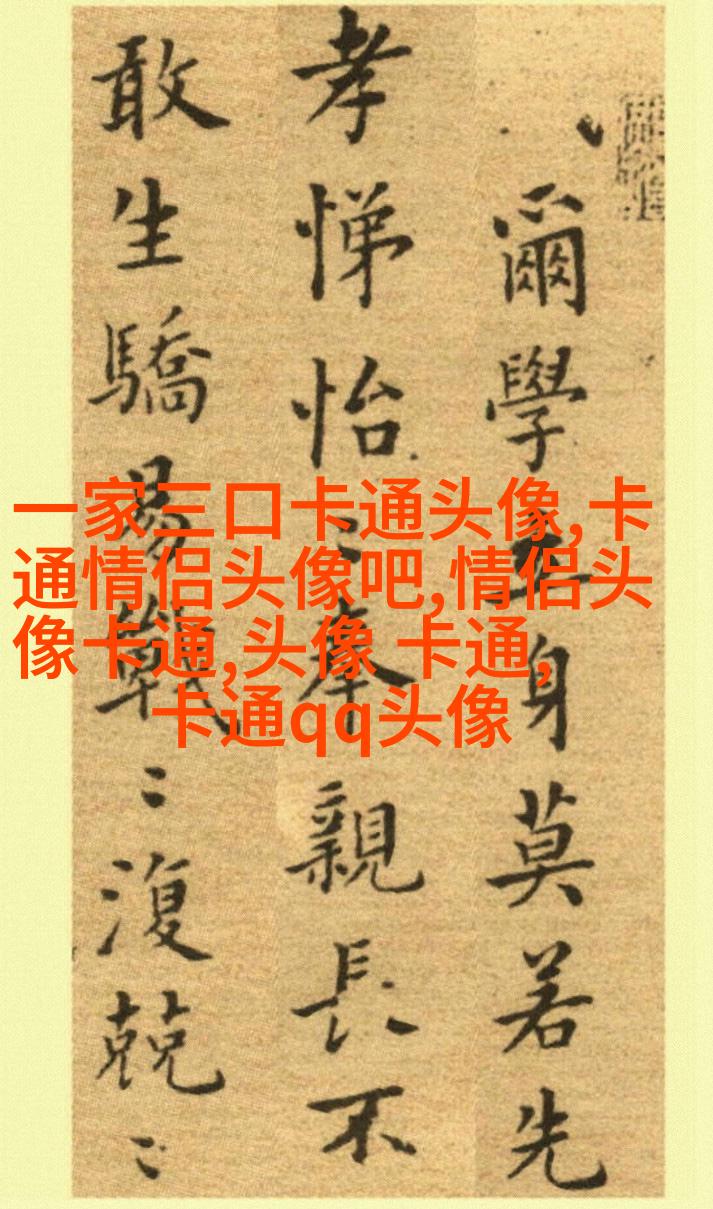 爾學立身莫若先
孝悌怡〻奉親長不
敢生驕易戰〻復兢〻
一家三口卡通头像,卡
通情侣头像吧,情侣头
像卡通,头像 卡通,
卡通qq头像